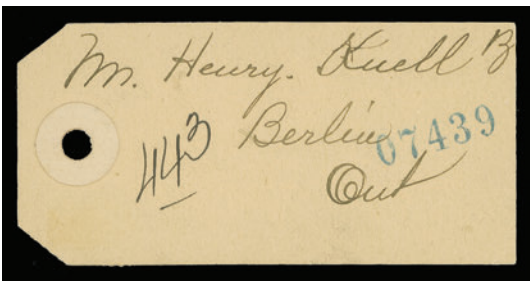 Mr. Henry. Knell B
Berlin
07439
443
Ont